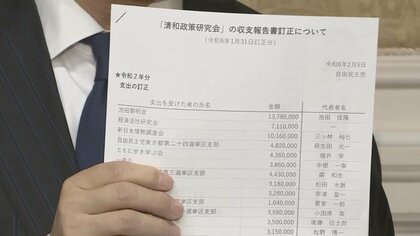 「清和政策研究会」の収支報告書訂正について
(令和6年1月31日訂正分)
令和6年2月5日
自由民主党
★令和2年分
支出の訂正
支出を受けた者の氏名 金額 代表者名
池田黎明会 13,780,000 池田 佳隆
経済活性研究会 7,110,000
新日本情勢調査会 10,160,000 三ッ林 裕巳
自由民主党東京都第二十四選挙区支部 4,820,000 萩生田 光一
ともに歩き学ぶ会 4,360,000 堀井 学
3,860,000 中根 一幸
三選挙区支部 4,430,000 関 和生
3,180,000 杉田 水脈
3,280,000 宗清 皇一
1,040,000 菅家 一郎
3,580,000 小田原 潔
3,500,000 衛藤 征士郎
3,150,000 松野 博一